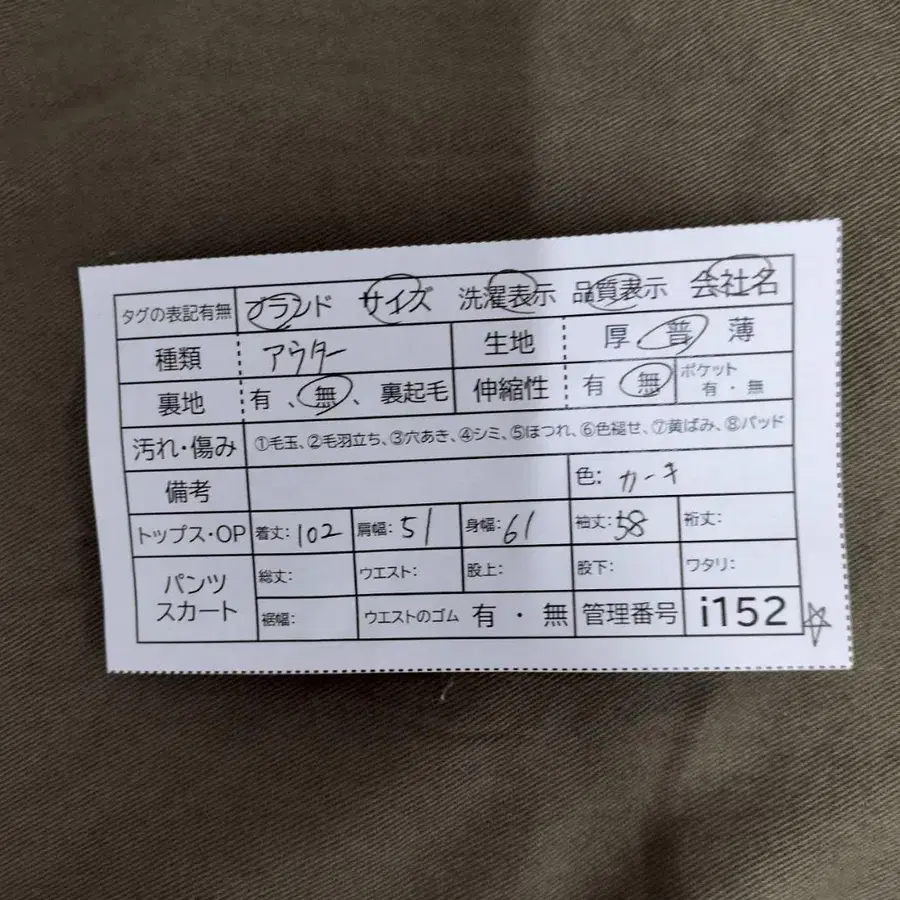 タグの表記有無 ブランド サイズ 洗濯表示 品質表示 会社名
種類 アウター 生地 厚 普 薄
裏地 有 、無 、裏起毛 伸縮性 有 無 ポケット 有・無
汚れ・傷み ①毛玉、②毛羽立ち、③穴あき、④シミ、⑤ほつれ、⑥色褪せ、⑦黄ばみ、⑧パッド
備考 色: カーキ
トップス・OP 着丈: 102 肩幅: 51 身幅: 61 袖丈: 58 裄丈:
パンツ スカート 総丈: ウエスト: 股上: 股下: ワタリ:
裾幅: ウエストのゴム 有・無 管理番号 i152